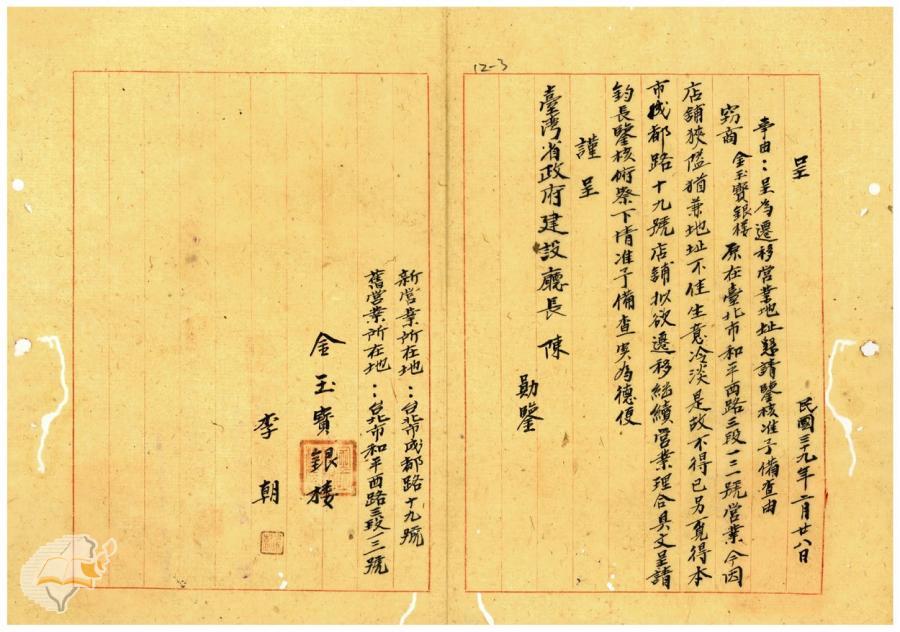 12-3
呈 民國三十九年二月廿八日
事由：呈為遷移營業地址懇請鑒核准予備查由
竊商金玉寶銀樓原在臺北市和平西路三段一三一號營業今因
店舖狹隘猶兼地址不佳生意冷淡是故不得已另覓得本
市成都路十九號店舖拟欲遷移継續營業理合具文呈請
鈞長鑒核俯察下情准予備查实為德便
謹呈
臺湾省政府建設廳長陳 勛鑒
新營業所在地：台北市成都路十九號
舊營業所在地：台北市和平西路三段一三一號
金玉寶銀楼
李朝